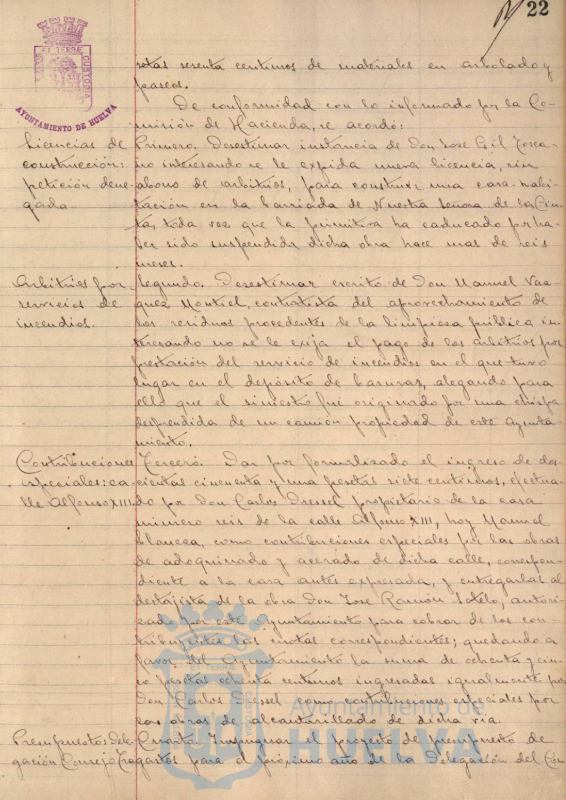 22
PORTUS MARIS ET TERRAE CUSTODIA
AYUNTAMIENTO DE HUELVA
setas sesenta centimos de materiales en arbolado y
paseos.
De conformidad con lo informado por la Co-
misión de Hacienda, se acordó:
Licencias de
construcción:
petición dene-
gada
Primero. Desestimar instancia de Don Jose Gil Tosca-
no interesando se le expida nueva licencia, sin
abono de arbitrios, para construir una casa-habi-
tación en la barriada de Nuestra Señora de la Cin-
ta, toda vez que la primitiva ha caducado por ha-
ber sido suspendida dicha obra hace mas de seis
meses.
Arbitrios por
servicios de
incendios.
Segundo. Desestimar escrito de Don Manuel Vaz-
quez Montiel, contratista del aprovechamiento de
los residuos procedentes de la limpieza pública in-
teresando no se le exija el pago de los arbitrios por
prestación del servicio de incendios en el que tuvo
lugar en el depósito de basuras, alegando para
ello que el siniestro fué originado por una chispa
desprendida de un camión propiedad de este Ayunta-
miento.
Contribuciones
especiales: ca-
lle Alfonso XIII.
Tercero. Dar por formalizado el ingreso de dos-
cientas cincuenta y una pesetas siete centimos, efectua-
do por Don Carlos Dressel propietario de la casa
número seis de la calle Alfonso XIII, hoy Manuel
como contribuciones especiales por las obras
de adoquinado y acerado de dicha calle, correspon-
diente a la casa antes expresada, y entregarlas al
destajista de la obra Don Jose Ramón Sotelo, autori-
zado por este Ayuntamiento para cobrar de los con-
tribuyentes las cuotas correspondientes; quedando a
favor del Ayuntamiento la suma de ochenta y cin-
co pesetas ochenta centimos ingresadas igualmente por
Don Carlos Dressel como contribuciones especiales por
las obras de alcantarillado de dicha via.
Presupuestos Dele-
gación Consejo Tra-
Cuarto. Impugnar el proyecto de presupuesto de
gastos para el próximo año de la Delegación del Con-
Ayuntamiento de
HUELVA